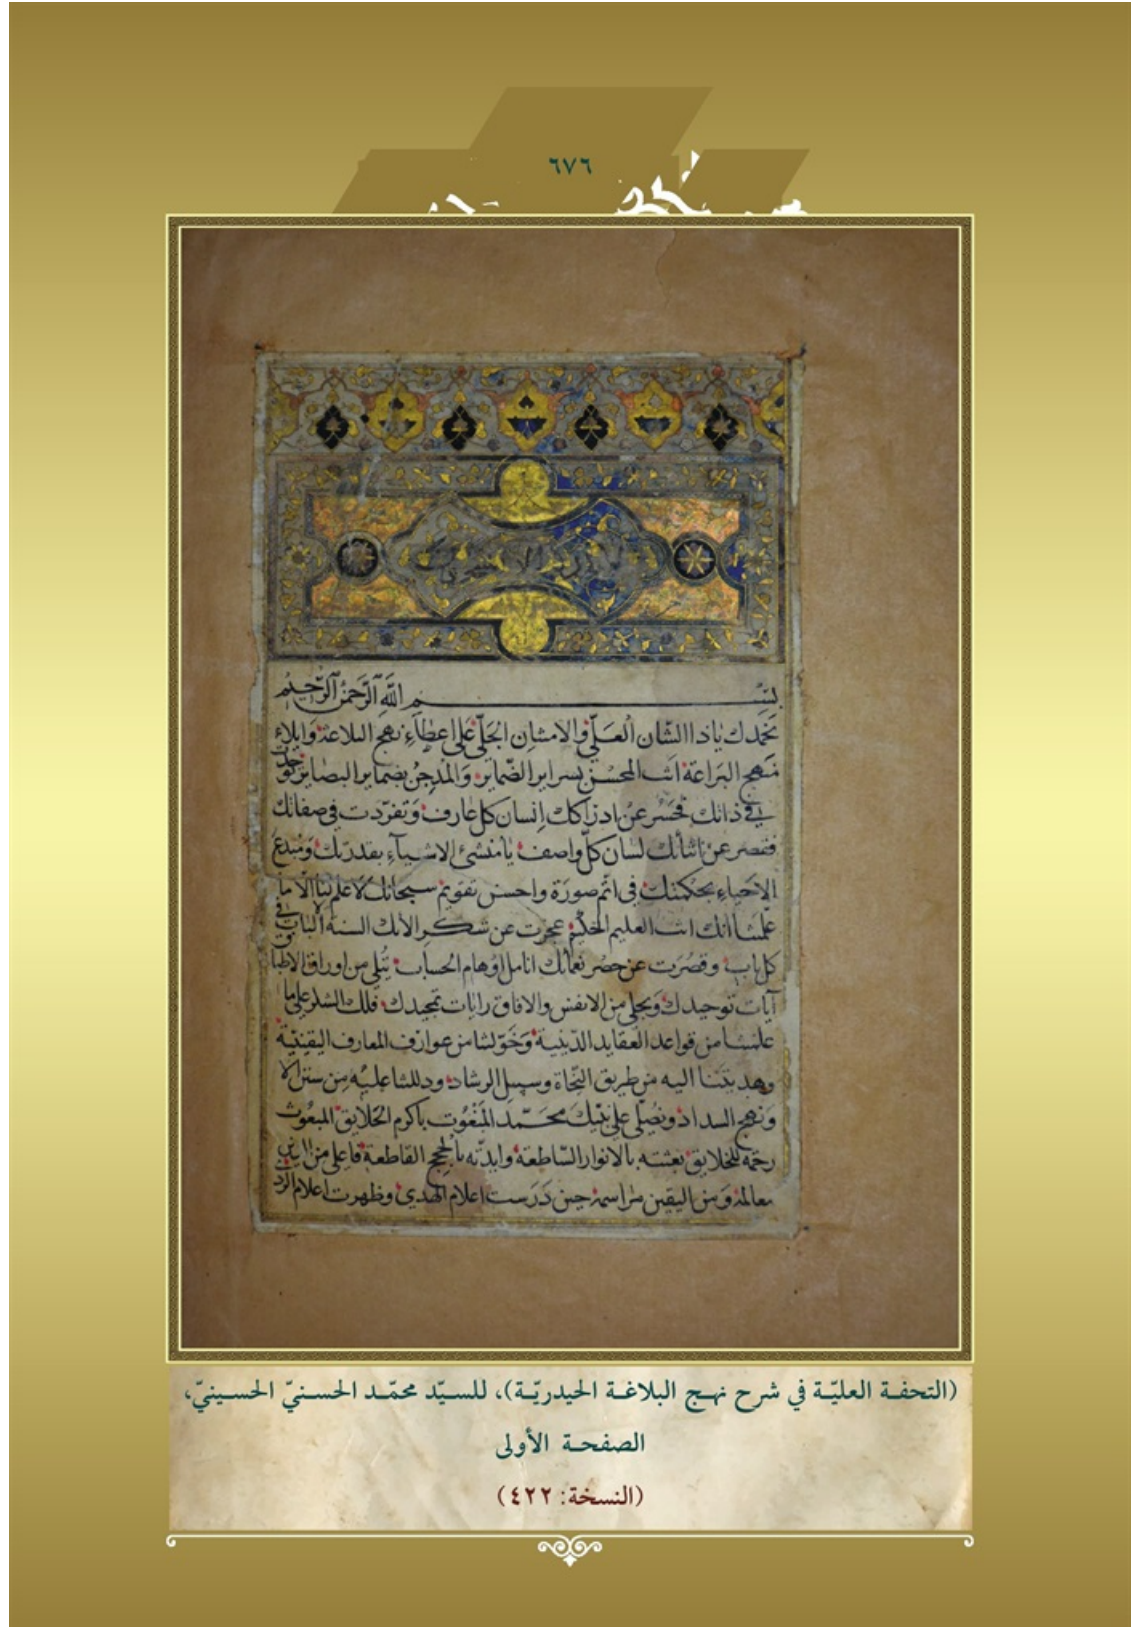 ٦٧٦
بسم الله الرحمن الرحيم
نحمدك ياذا الشان العلي والامتنان الجلي على اعطاء نهج البلاغة وايلاء
منهج البراعة انت المحسن بسراير الضماير والمدجن بضماير البصاير
في ذاتك فحسر عن ادراكك انسان كل عارف وتفردت في صفاتك
فقصر عن اثنائك لسان كل واصف يا منشئ الاشياء بقدرتك ومبدع
الاحياء بحكمتك في اتم صورة واحسن تقويم سبحانك لا علم لنا الا ما
علمتنا انك انت العليم الحكيم عجزت عن شكر الائك السنة الالباب في
كل باب وقصرت عن حصر نعمائك انامل اوهام الحساب تتلى من اوراق الاطباق
آيات توحيدك وتجلى من الانفس والافاق رايات تمجيدك فلك الشكر على ما
علمتنا من قواعد العقايد الدينية وخولتنا من عوارف المعارف اليقينية
وهديتنا اليه من طريق النجاة وسبيل الرشاد ودللتنا عليه من سنن
ونهج السداد ونصلي على نبيك محمد المنعوت باكرم الخلايق المبعوث
رحمة للخلايق بعثته بالانوار الساطعة وايدته بالحجج القاطعة فاعلى من الدين
معالمه ومن اليقين مراسمه حين درست اعلام الهدى وظهرت اعلام الردى
(التحفة العليّة في شرح نهج البلاغة الحيدريّة)، للسيّد محمّد الحسنيّ الحسينيّ،
الصفحة الأولى
(النسخة: ٤٢٢)